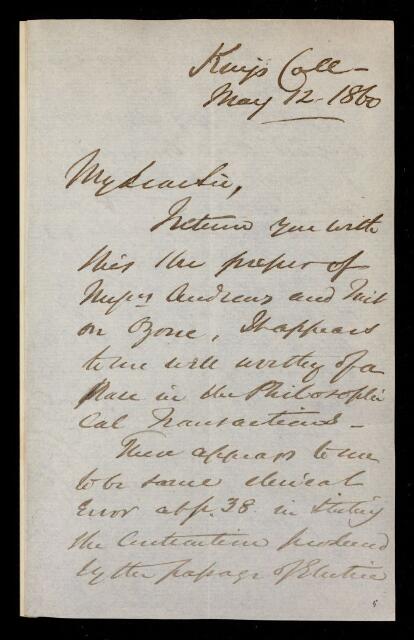 Kings Coll -
May 12 - 1860
My dear Sir,
I return you with
this the paper of
Messrs Andrews and Tait
on Ozone, It appears
to me well worthy of a
place in the Philosophi
cal Transactions -
There appears to me
to be some clerical
Error at p. 38 in stating
the Contraction produced
by the passage of Electric